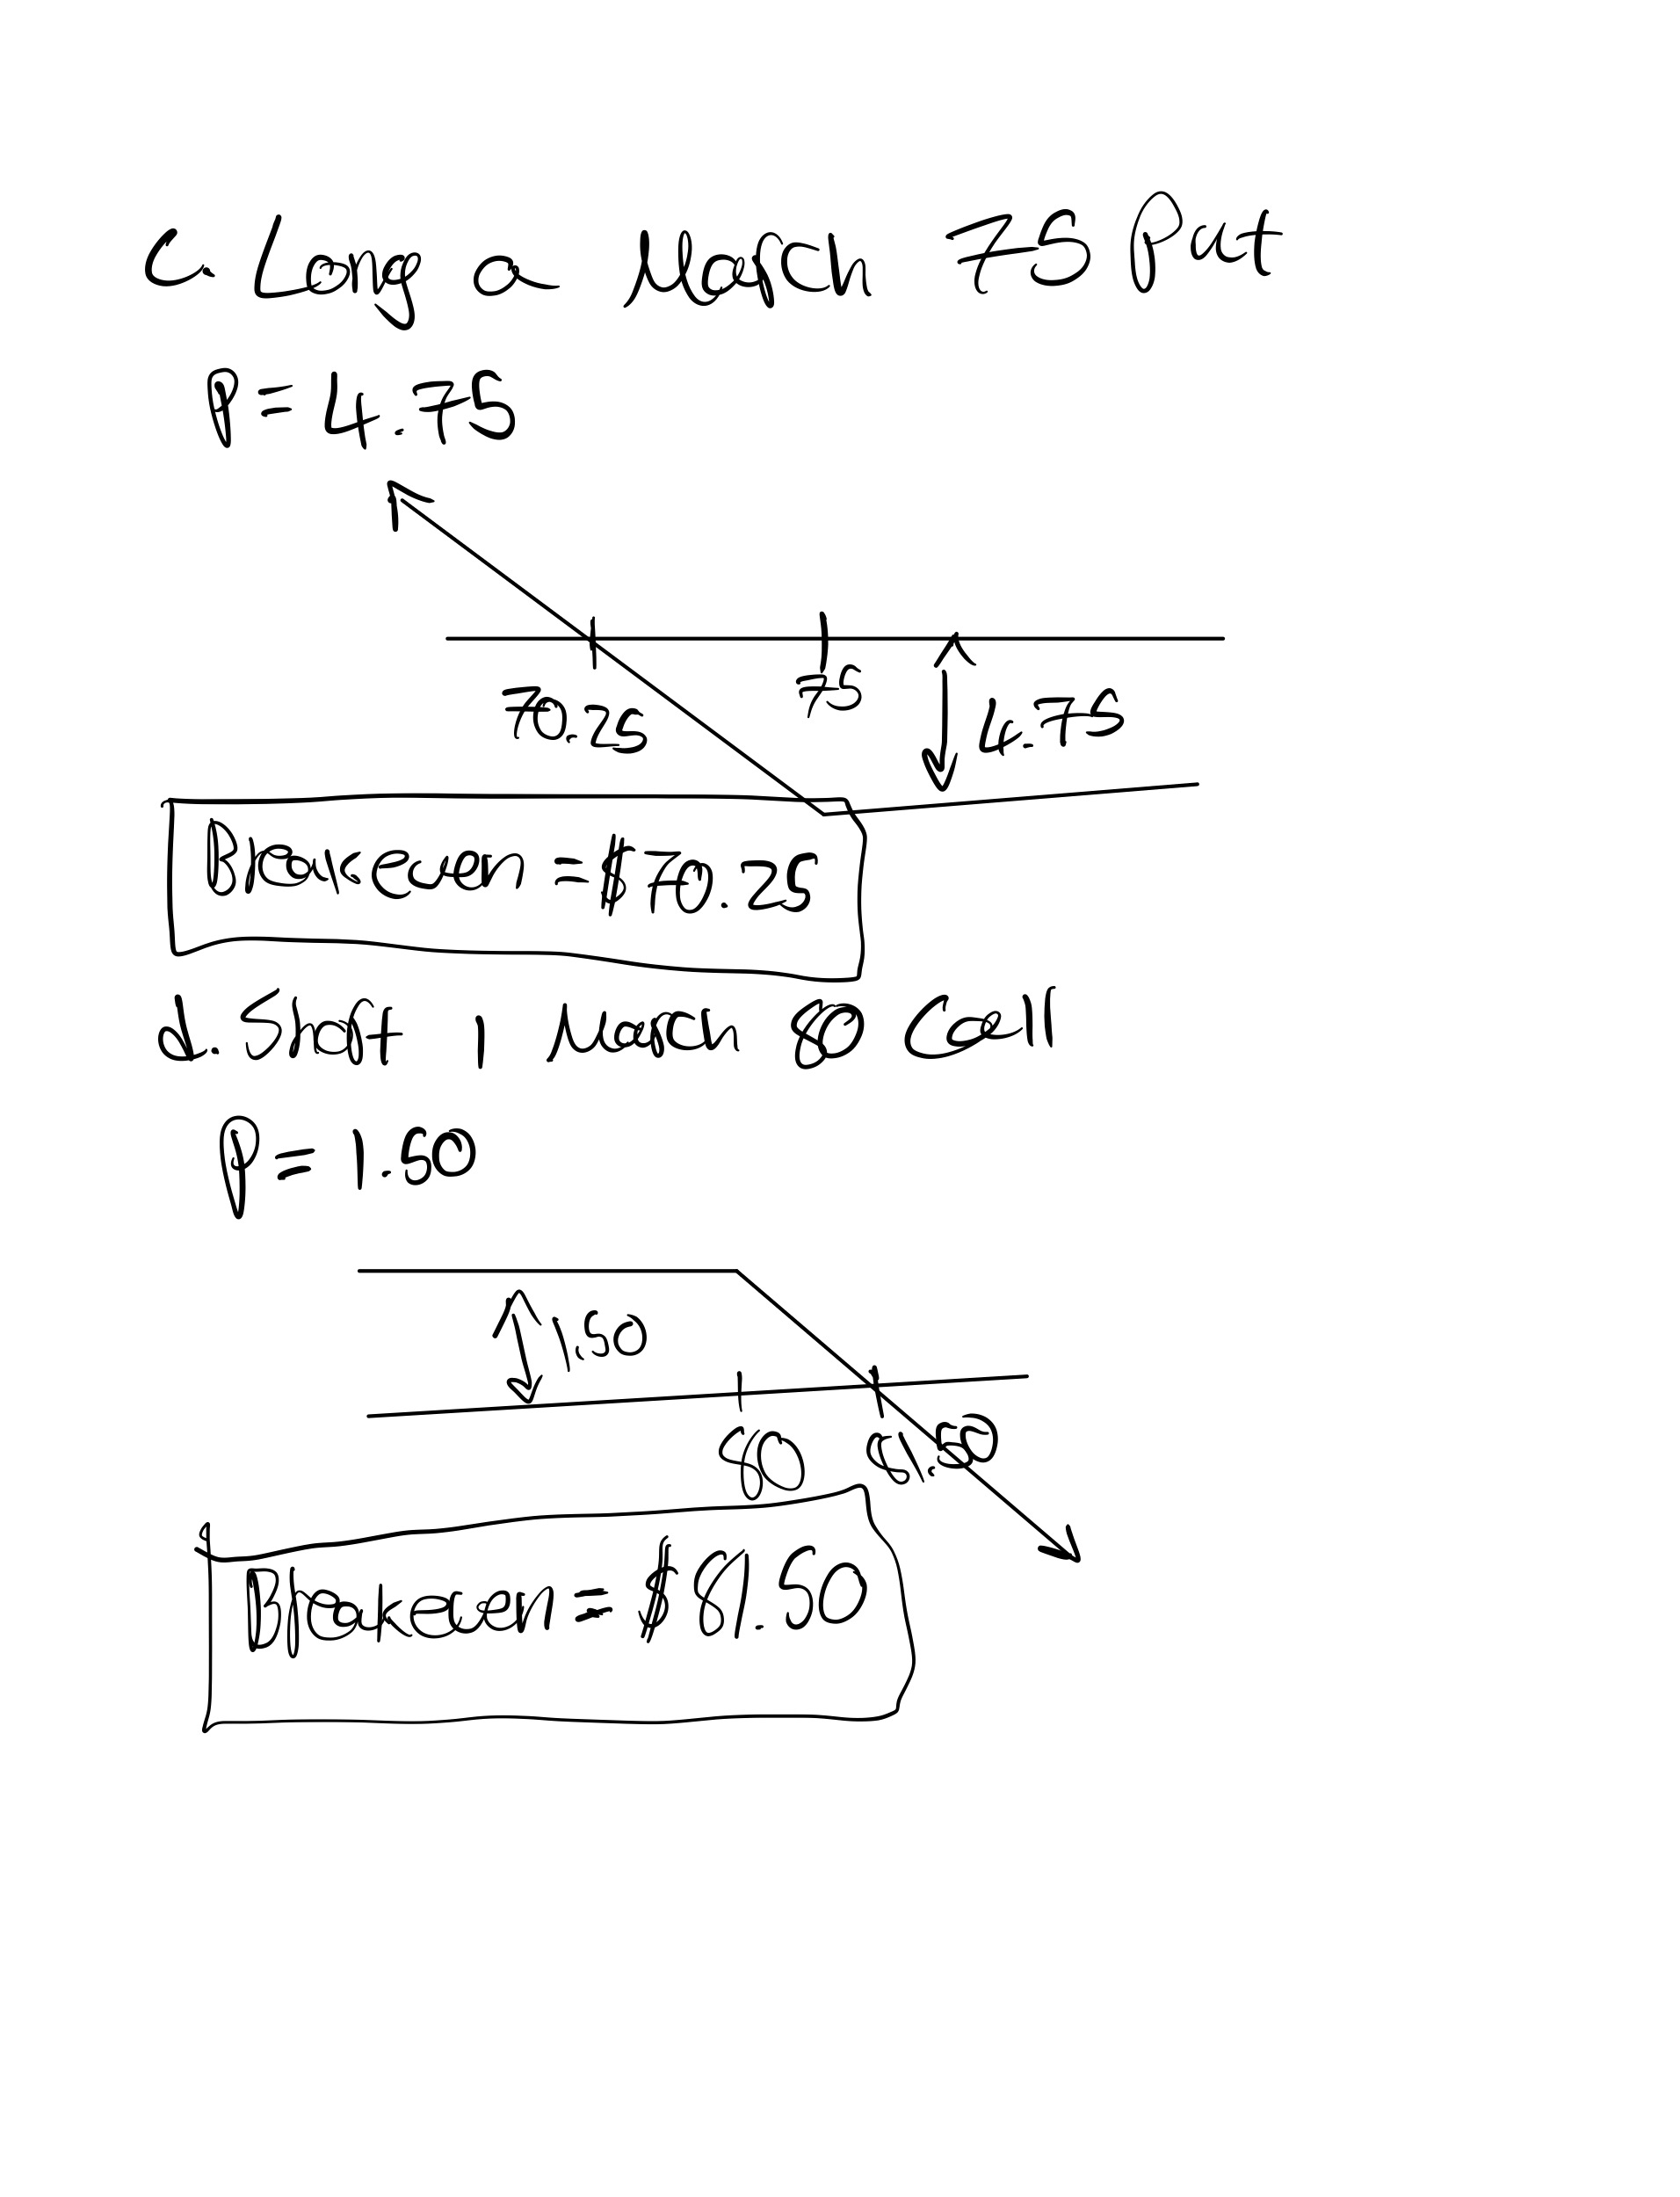 c. Long a March 75 Put
P = 4.75
75
70.25
4.75
Breakeven = $70.25
d. Short 1 March 80 Call
P = 1.50
1.50
80 81.50
Breakeven = $81.50